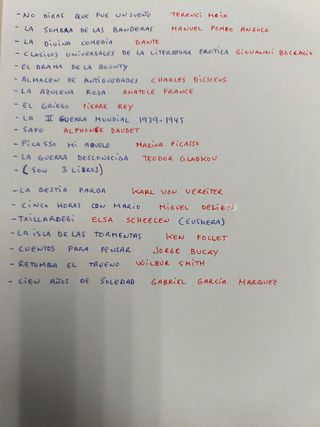 - NO DIGAS QUE FUE UN SUEÑO TERENCI MOIX
- LA SOMBRA DE LAS BANDERAS MANUEL POMBO ANGULO
- LA DIVINA COMEDIA DANTE
- CLASICOS UNIVERSALES DE LA LITERATURA EROTICA GIOVANNI BOCCACIO
- EL DRAMA DE LA BOUNTY
- ALMACEN DE ANTIGUEDADES CHARLES DICKENS
- LA AZUCENA ROJA ANATOLE FRANCE
- EL GRIEGO PIERRE REY
- LA II GUERRA MUNDIAL 1939-1945
- SAFO ALPHONSE DAUDET
- PICASSO MI ABUELO MARINA PICASSO
- LA GUERRA DESCONOCIDA TEODOR GLADKOV
- (SON 3 LIBROS)
- LA BESTIA PARDA KARL VON VEREITER
- CINCO HORAS CON MARIO MIGUEL DELIBES
- TXILLARDEGI ELSA SCHEELEN (EUSKERA)
- LA ISLA DE LAS TORMENTAS KEN FOLLET
- CUENTOS PARA PENSAR JORGE BUCAY
- RETUMBA EL TRUENO WILBUR SMITH
- CIEN AÑOS DE SOLEDAD GABRIEL GARCIA MARQUEZ